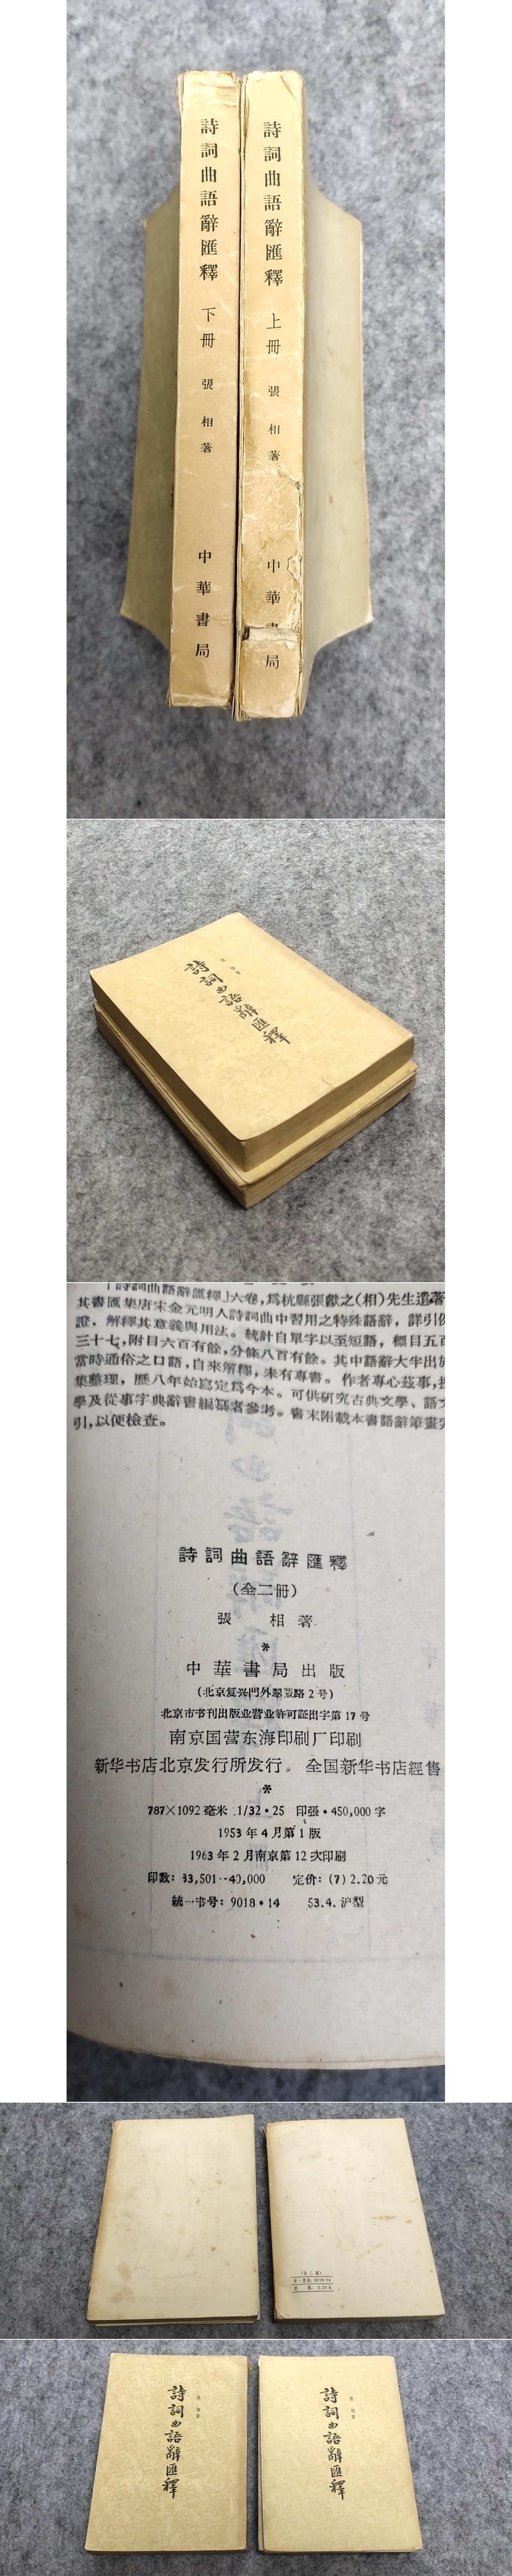 詩詞曲語辭匯釋 下冊 張相著 中華書局
詩詞曲語辭匯釋 上冊 張相著 中華書局
詩詞曲語辭匯釋
「詩詞曲語辭匯釋」六卷，爲杭縣張獻之(相)先生遺著
其書匯集唐宋金元明人詩詞曲中習用之特殊語辭，詳引例
證，解釋其意義與用法。統計自單字以至短語，標目五百
三十七，附目六百有餘，分條八百有餘。其中語辭大半出於
當時通俗之口語，自來解釋，未有專書。作者專心茲事，
集整理，歷八年始寫定爲今本。可供研究古典文學、語文
學及從事字典辭書編纂者參考。書末附載本書語辭筆畫索
引，以便檢查。
詩詞曲語辭匯釋
(全二冊)
張相著
*
中華書局出版
(北京复兴門外翠微路2号)
北京市书刊出版业营业許可証出字第17号
南京国营东海印刷厂印刷
新华书店北京发行所发行。全国新华书店經售
*
787×1092毫米 1/32·25 印張·450,000字
1953年4月第1版
1963年2月南京第12次印刷
印数：33,501--40,000 定价：(7) 2.20元
統一书号：9018·14 53.4.沪型
(全二冊)
統一書号：9018·14
定價：2.20元
張相著
詩詞曲語辭匯釋
張相著
詩詞曲語辭匯釋